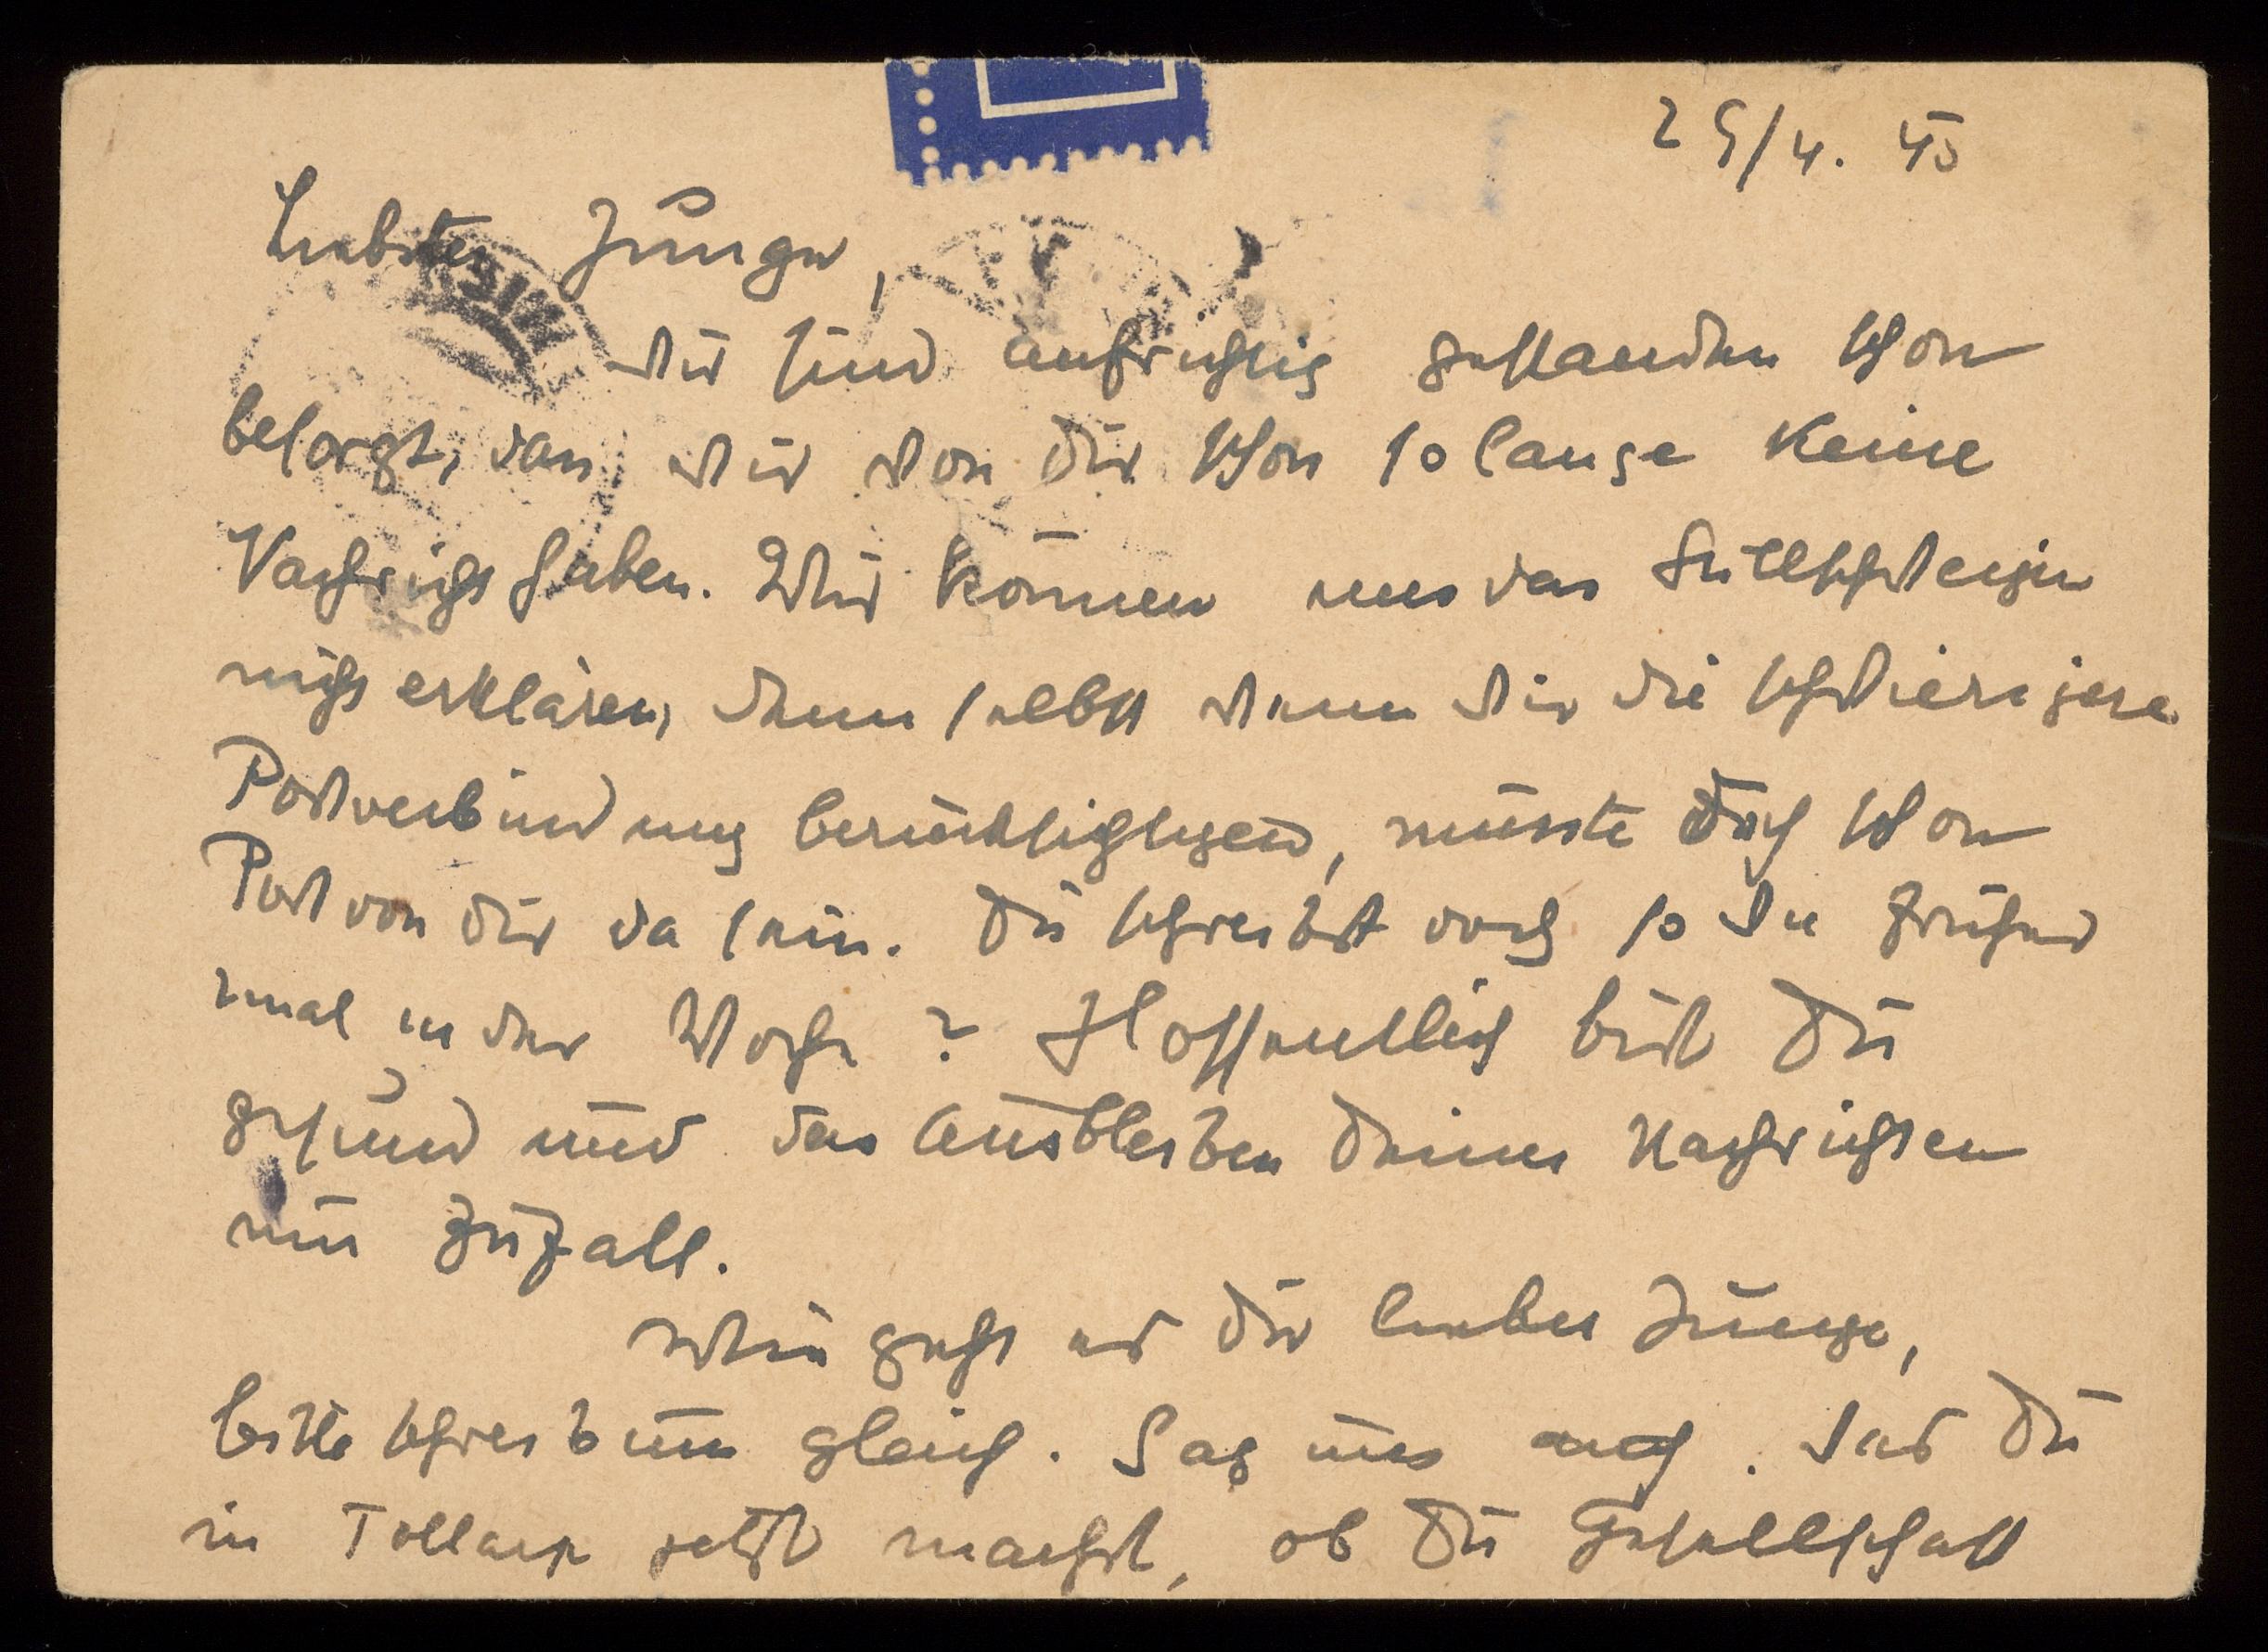 29/4. 45
Liebster Junge,
wir sind aufrichtig gestanden schon
besorgt, dass wir von Dir schon so lange keine
Nachricht haben. Wir können uns das Stillschweigen
nicht erklären, denn selbst wenn wir die schwierigere
Postverbindung berücksichtigen, müsste doch schon
Post von Dir da sein. Du schreibst doch so wie früher
2mal in der Woche? Hoffentlich bist Du
gesund und das Ausbleiben Deiner Nachrichten
nur Zufall.
Wie geht es Dir lieber Junge,
bitte schreib uns gleich. Sag uns auch was Du
in Tollarp jetzt machst, ob Du Gesellschaft